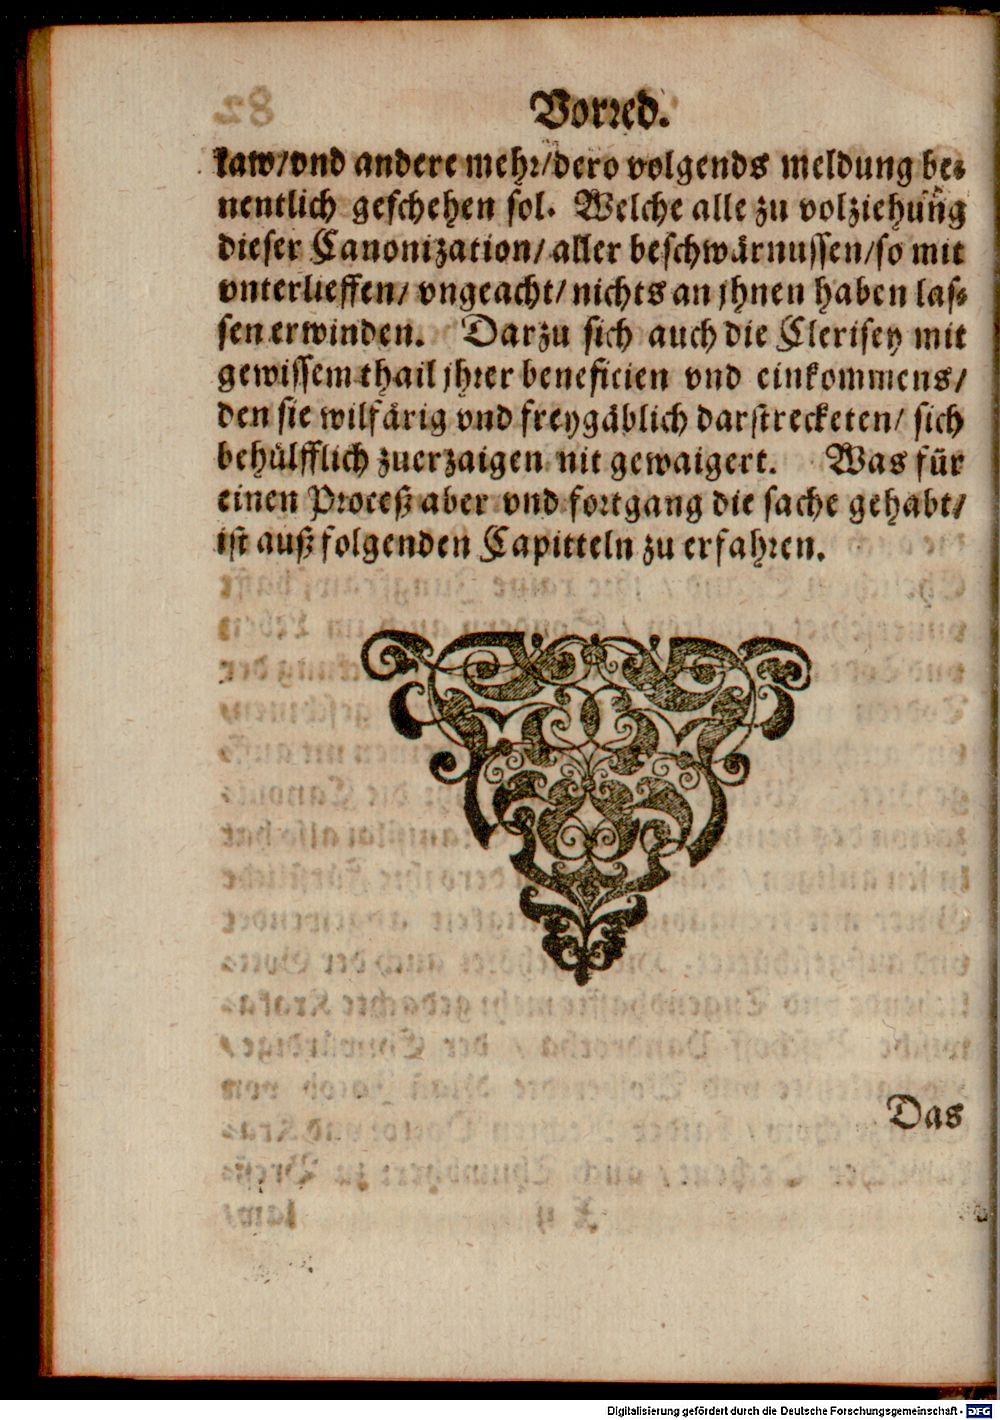 Vorred.
law/vnd andere mehr/dero volgends meldung be-
nentlich geschehen sol. Welche alle zu volziehung
dieser Canonization/ aller beschwärnussen/so mit
vnterlieffen/ vngeacht/ nichts an jhnen haben las-
sen erwinden. Darzu sich auch die Clerisey mit
gewissem thail jhrer beneficien vnd einkommens/
den sie wilfärig vnd freygäblich darstrecketen/ sich
behülfflich zuerzaigen nit gewaigert. Was für
einen Proceß aber vnd fortgang die sache gehabt/
ist auß folgenden Capitteln zu erfahren.
Das
Digitalisierung gefördert durch die Deutsche Forschungsgemeinschaft - DFG